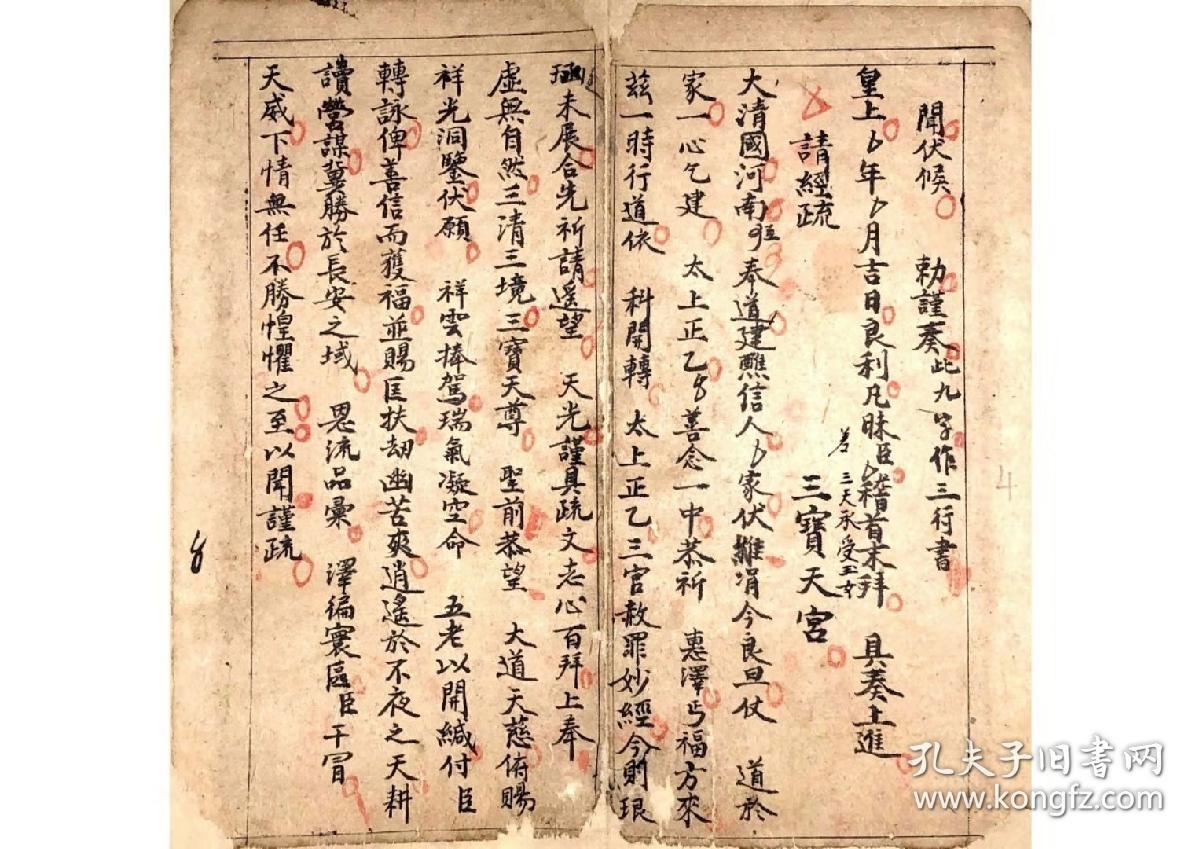 聞伏候　勅謹奏此九字作三行書
皇上ㄣ年ㄣ月吉日良利凡昧臣ㄣ稽首末拜　具奏上進
三天承受玉女
請經疏　三寶天宮
大清國河南　奉道建醮信人ㄣ家伏雖涓今良旦仗　道於
家一心乞建　太上正乙　善念一中恭祈　惠澤丐福方來
茲一時行道依　科開轉　太上正乙三官赦罪妙經今則琅
函未展合先祈請遥望　天光謹具疏文志心百拜上奉
虛無自然三清三境三寶天尊　聖前恭望　大道天慈俯賜
祥光洞鑒伏願　祥雲捧駕瑞氣凝空命　五老以開緘付臣
轉詠俾善信而獲福並賜匡扶劫幽苦爽逍遙於不夜之天耕
讀營謀冀勝於長安之域　恩流品彙　澤徧寰區臣干冒
天威下情無任不勝惶懼之至以聞謹疏
4
8
孔夫子旧书网
www.kongfz.com